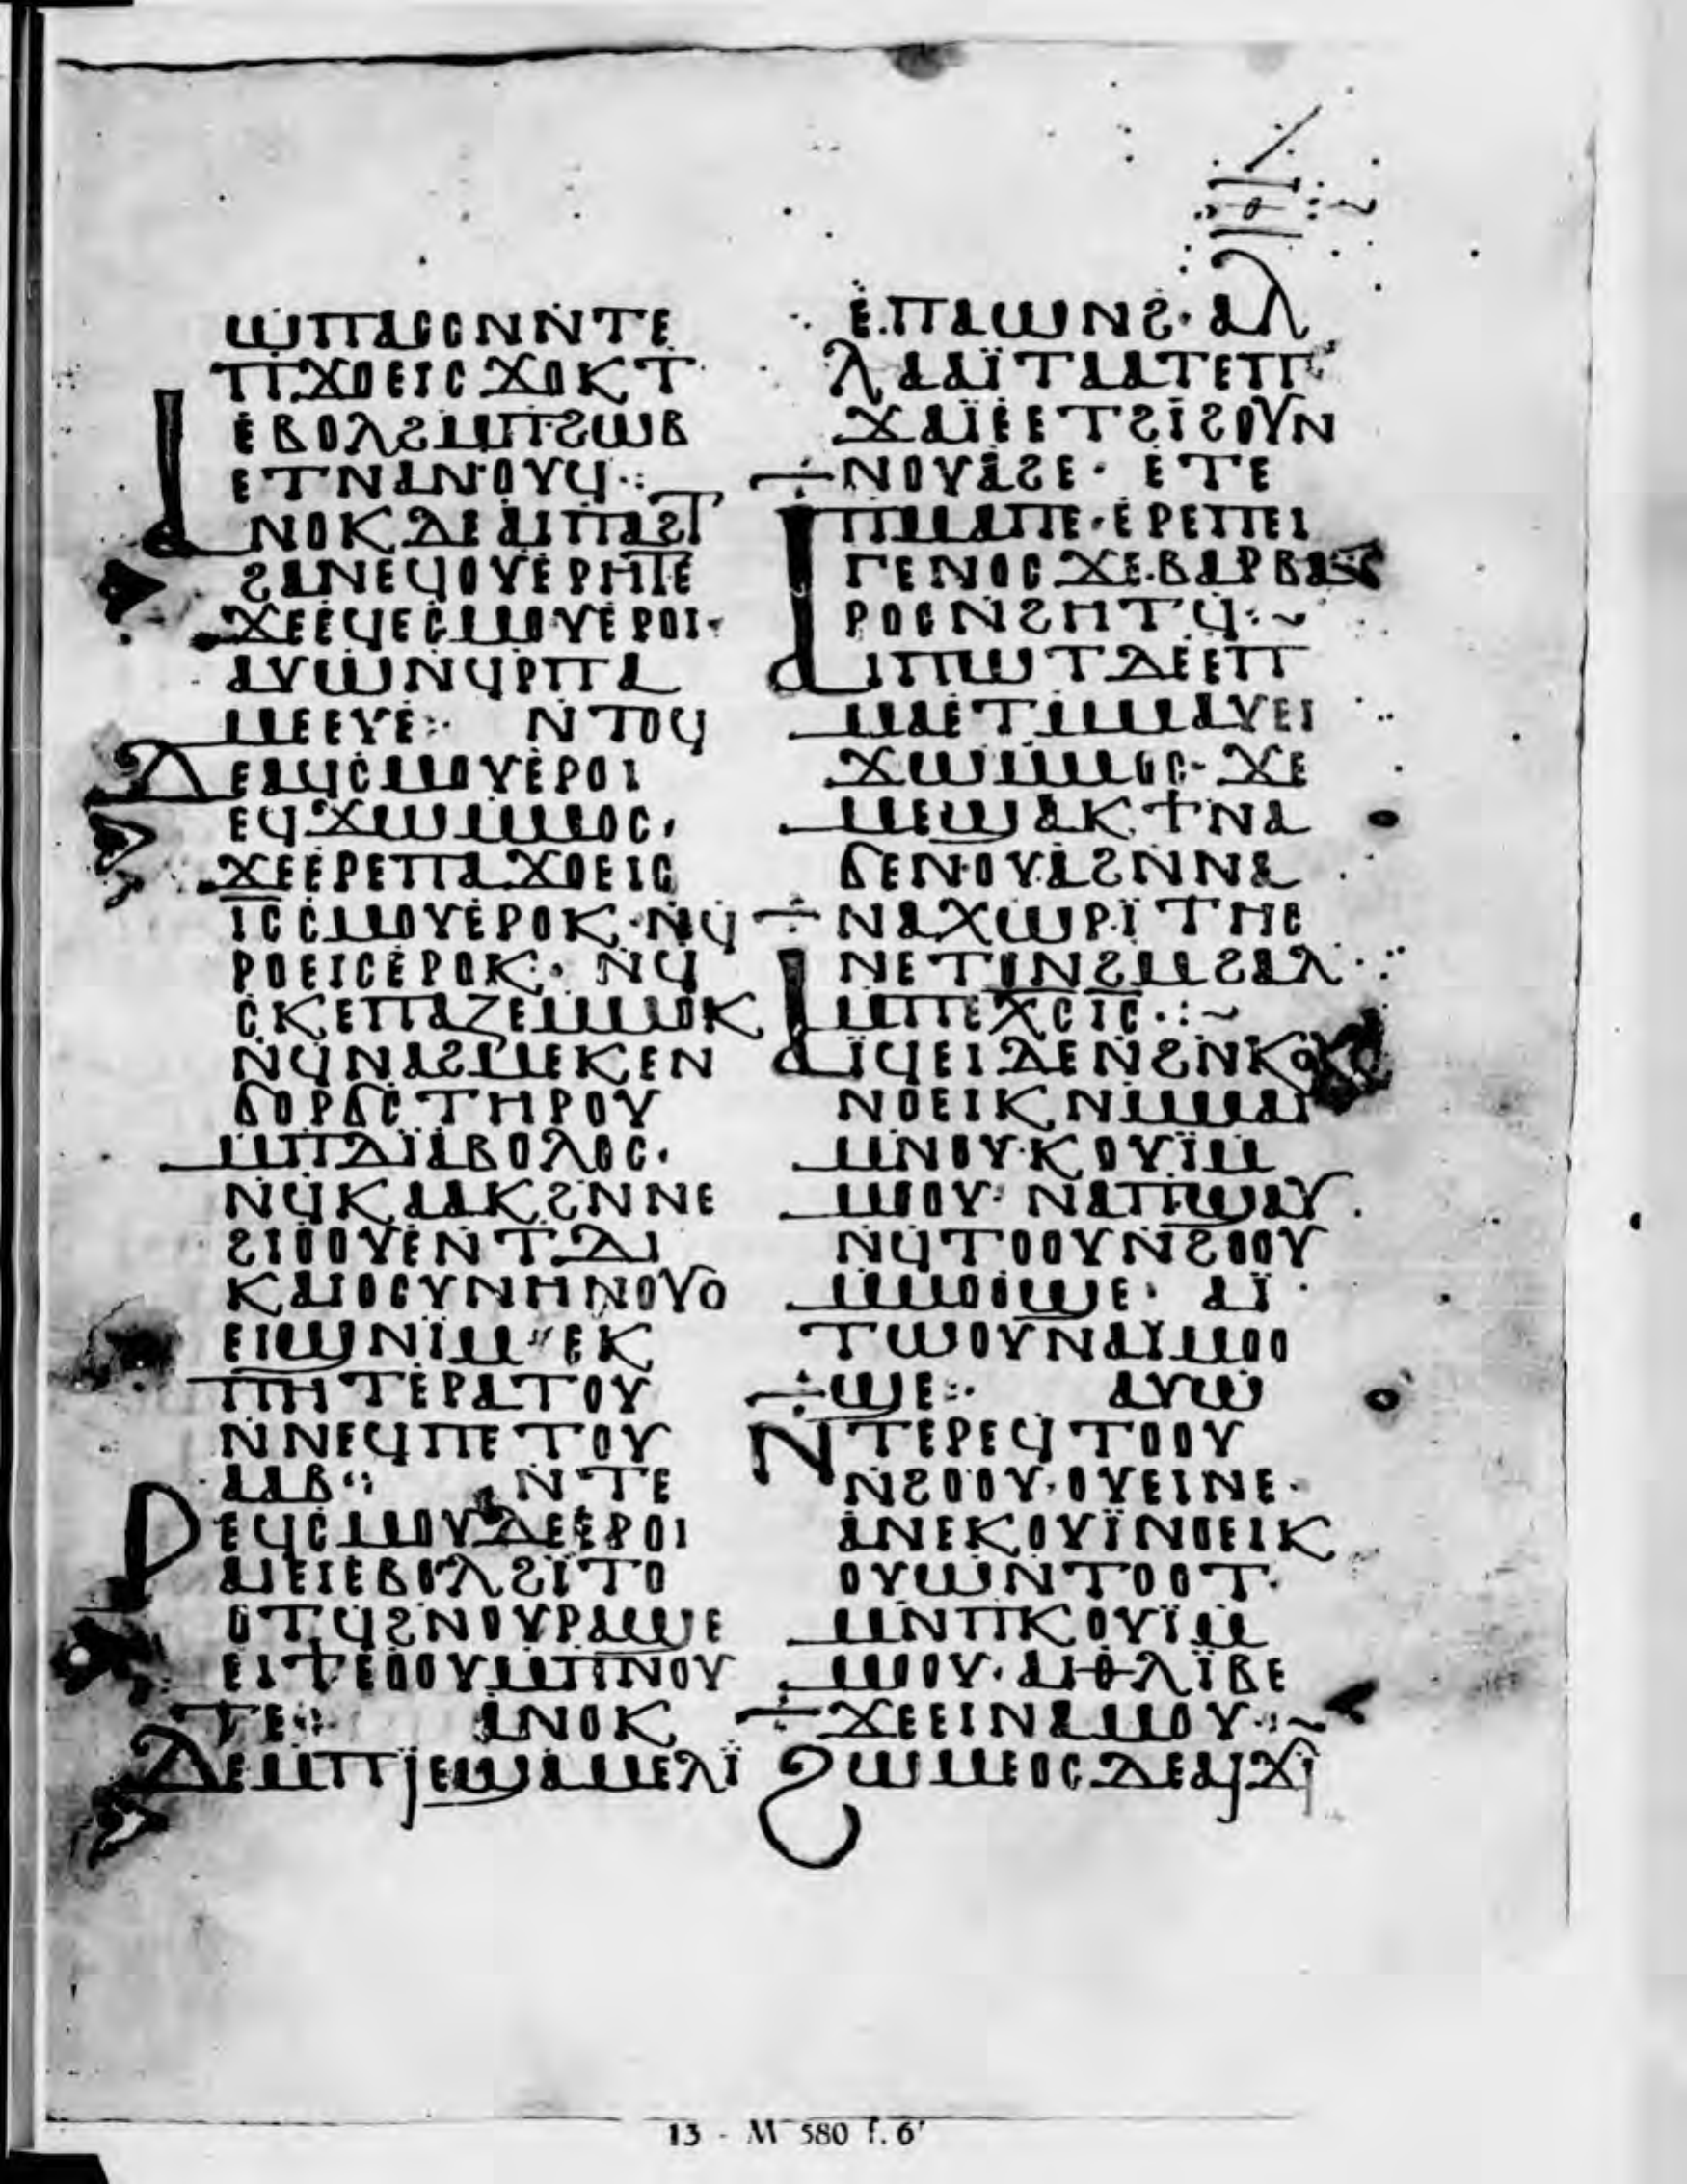 ⲑ
ⲱ̇ⲡⲁⲥⲟⲛⲛ̇ⲧⲉ
ⲡϫⲟⲉⲓⲥϫⲟⲕⲧ
ⲉ̇ⲃⲟⲗϩⲙ̇ⲡϩⲱⲃ
ⲉⲧⲛⲁⲛⲟⲩϥ·:
ⲁⲛⲟⲕⲇⲉⲁⲓⲡⲁϩⲧ
ϩⲁⲛⲉϥⲟⲩⲉ̇ⲣⲏⲧⲉ
ϫⲉⲉϥⲉⲥ̇ⲙⲟⲩⲉ̇ⲣⲟⲓ·
ⲁⲩⲱ̇ⲛϥⲣⲡⲁ
ⲙⲉⲉⲩⲉ:· ⲛ̇ⲧⲟϥ
ⲇⲉⲁϥⲥ̇ⲙⲟⲩⲉ̇ⲣⲟⲓ
ⲉϥϫⲱⲙ̇ⲙⲟⲥ·
ϫⲉⲉ̇ⲣⲉⲡⲁϫⲟⲉⲓⲥ
ⲓⲥⲥ̇ⲙⲟⲩⲉ̇ⲣⲟⲕ·ⲛ̇ϥ
ⲣⲟⲉⲓⲥⲉ̇ⲣⲟⲕ· ⲛ̇ϥ
ⲥ̇ⲕⲉⲡⲁⲍⲉⲙ̇ⲙⲟⲕ
ⲛ̇ϥⲛⲁϩⲙⲉⲕⲉⲛ
ϭⲟⲣϭⲥ̇ⲧⲏⲣⲟⲩ
ⲙ̇ⲡⲇⲓⲁⲃⲟⲗⲟⲥ·
ⲛ̇ϥⲕⲁⲁⲕϩⲛⲛⲉ
ϩⲓⲟⲟⲩⲉ̇ⲛⲧⲇⲓ
ⲕⲁⲓⲟⲥⲩⲛⲏⲛⲟⲩⲟ
ⲉⲓϣⲛⲓⲙ·ⲉⲕ
ⲡⲏⲧⲉ̇ⲣⲁⲧⲟⲩ
ⲛ̇ⲛⲉϥⲡⲉⲧⲟⲩ
ⲁⲁⲃ·: ⲛ̇ⲧⲉ
ⲣⲉϥⲥ̇ⲙⲟⲩⲇⲉⲉ̇ⲣⲟⲓ
ⲁⲓⲉⲓⲉ̇ⲃⲟⲗϩⲓⲧⲟ
ⲟⲧϥϩⲛⲟⲩⲣⲁϣⲉ
ⲉⲓϯⲉⲟⲟⲩⲙ̇ⲡⲛⲟⲩ
ⲧⲉ·: ⲁⲛⲟⲕ
ⲇⲉⲙ̇ⲡⲓⲉϣⲁⲙⲉⲗⲓ
ⲉ̇·ⲡⲁϣⲛϩ·ⲁⲗ
ⲗⲁⲁⲓ̈ⲧⲁⲁⲧⲉⲡ
ϫⲁⲓ̈ⲉ̇ⲉⲧϩⲓ̈ϩⲟⲩⲛ
ⲛⲟⲩⲁϩⲉ· ⲉⲧⲉ
ⲡⲙⲁⲡⲉ·ⲉ̇ⲣⲉⲡⲉⲓ
ⲅⲉⲛⲟⲥϫⲉ·ⲃⲁⲣⲃⲁ
ⲣⲟⲥⲛ̇ϩⲏⲧϥ:~
ⲁⲓⲡⲱⲧⲇⲉⲉⲡ
ⲙⲁⲉⲧⲙ̇ⲙⲁⲩⲉⲓ
ϫⲱⲙ̇ⲙⲟⲥ·ϫⲉ
ⲙⲉϣⲁⲕϯⲛⲁ
ϭⲉⲛⲟⲩⲁϩⲛⲛⲁ
ⲛⲁⲭⲱⲣⲓ̈ⲧⲏⲥ
ⲛⲉⲧⲟⲛϩⲙϩⲁⲗ
ⲙ̇ⲡⲉⲭⲥⲓⲥ·:~
ⲁⲓ̈ϥⲉⲓⲇⲉⲛ̇ϩⲛⲕⲟⲩ
ⲛⲟⲉⲓⲕⲛⲙ̇ⲙⲁⲓ
ⲙⲛⲟⲩⲕⲟⲩⲓ̈ⲙ
ⲙⲟⲟⲩ· ⲛⲁⲡϣⲁⲩ·
ⲛ̇ϥⲧⲟⲟⲩⲛ̇ϩⲟⲟⲩ
ⲙ̇ⲙⲟⲟϣⲉ· ⲁⲓ̈
ⲧⲱⲟⲩⲛⲁⲓ̈ⲙⲟⲟ
ϣⲉ:· ⲁⲩⲱ
ⲛⲧⲉⲣⲉϥⲧⲟⲟⲩ
ⲛ̇ϩⲟⲟⲩ·ⲟⲩⲉⲓⲛⲉ·
ⲁⲛⲉⲕⲟⲩⲓ̈ⲛⲟⲉⲓⲕ
ⲟⲩⲱ̇ⲛⲧⲟⲟⲧ·
ⲙⲛⲡⲕⲟⲩⲓ̈ⲙ
ⲙⲟⲟⲩ·ⲁⲓⲑⲗⲓ̈ⲃⲉ
ϫⲉⲉⲓⲛⲁⲙⲟⲩ·:~
ϩⲱⲙⲉⲟⲥⲇⲉⲁⲓϫⲓ
13 - M 580 f. 6ʳ